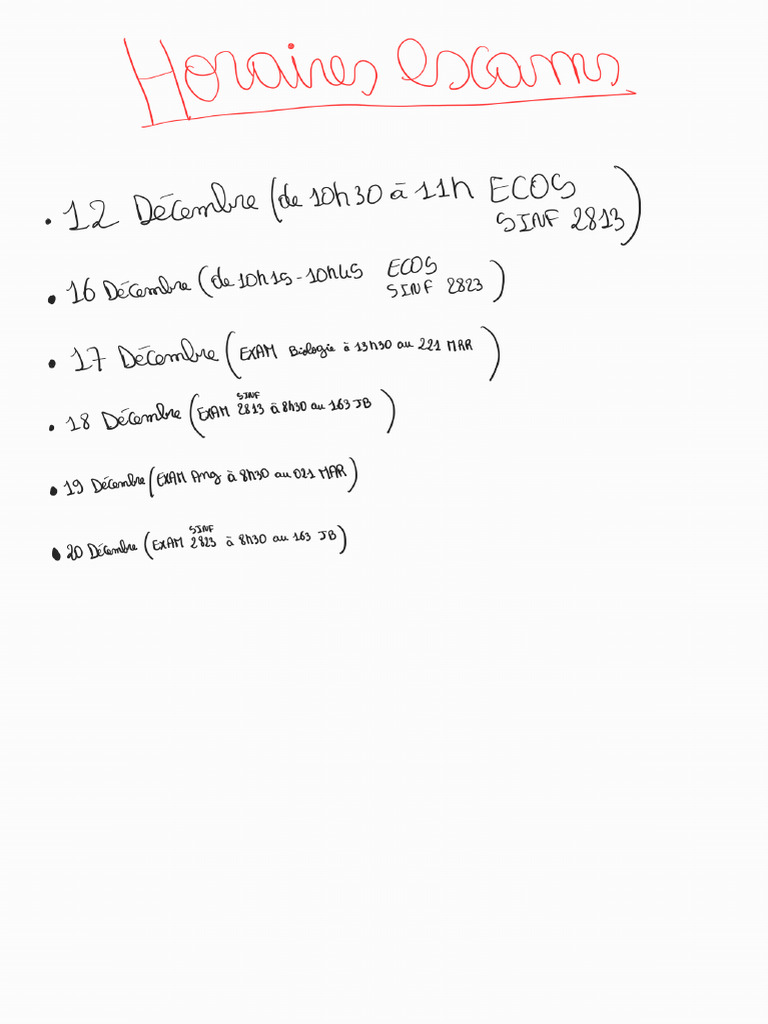 Horaires excams
• 12 Décembre (de 10h30 à 11h ECOS
SINF 2813)
• 16 Décembre (de 10h15 - 10h45 ECOS
SINF 2823)
• 17 Décembre (EXAM Biologie à 13h30 au 221 MAR)
• 18 Décembre (EXAM SINF 2813 à 8h30 au 163 JB)
• 19 Décembre (EXAM Ang à 8h30 au 021 MAR)
• 20 Décembre (EXAM SINF 2823 à 8h30 au 163 JB)